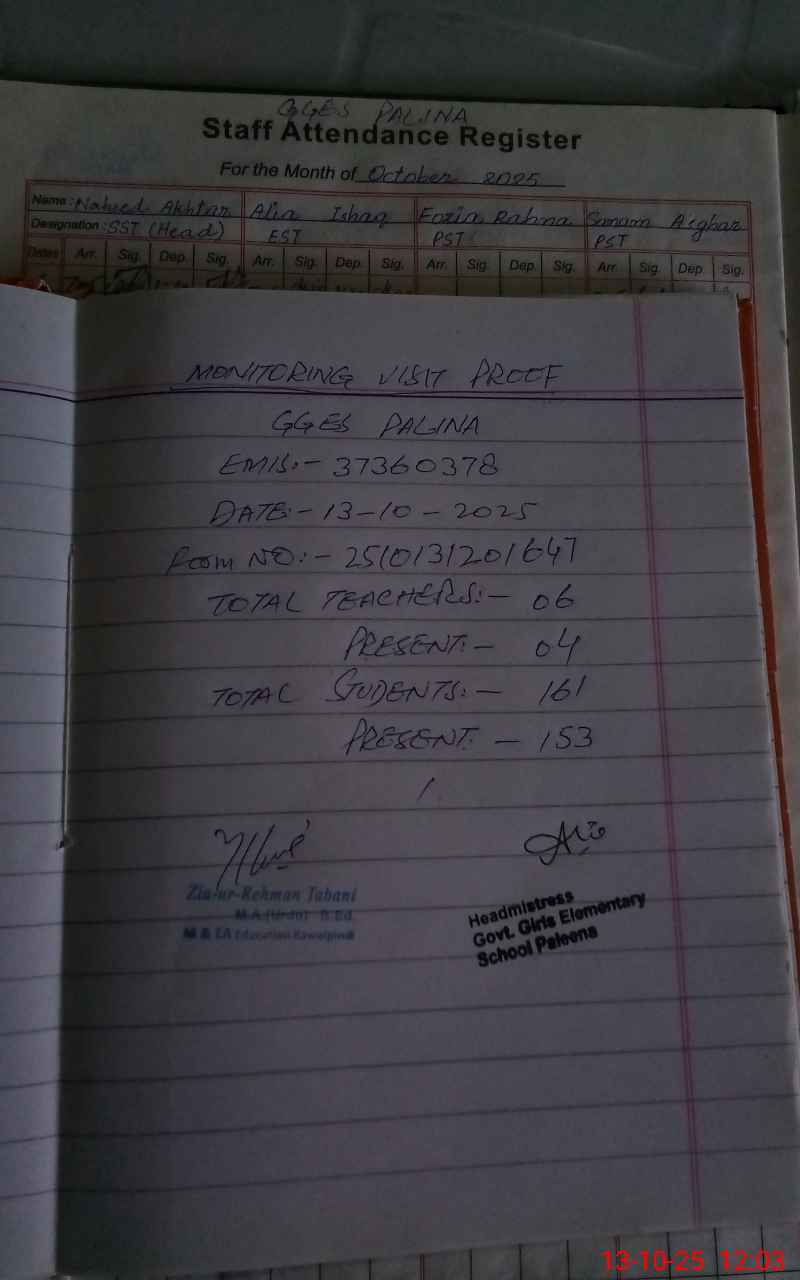 GGES PALINA
Staff Attendance Register
For the Month of October 2025
Name: Naheed Akhtar Alia Ishaq Fozia Rahna Sanam Asghar
Designation: SST (Head) EST PST PST
Dates Arr. Sig. Dep. Sig. Arr. Sig. Dep. Sig. Arr. Sig. Dep. Sig. Arr. Sig. Dep. Sig.
MONITORING VISIT PROOF
GGES PALINA
EMIS:- 37360378
DATE:- 13-10-2025
Form NO:- 2510131201647
TOTAL TEACHERS:- 06
PRESENT:- 04
TOTAL STUDENTS:- 161
PRESENT:- 153
Zia-ur-Rehman Tabani
M.A.(Urdu) B.Ed.
M & EA Education Rawalpindi
Headmistress
Govt. Girls Elementary
School Paleena
13-10-25 12:03